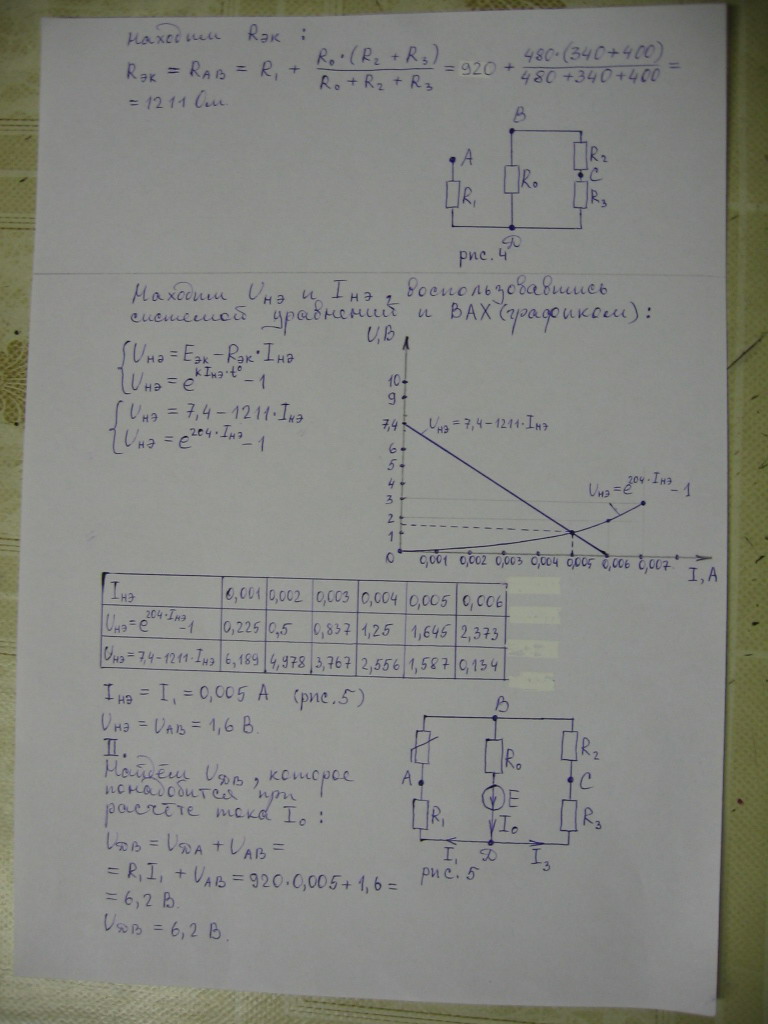 Находим Rэк :
Rэк = RАВ = R₁ + R₀·(R₂ + R₃) / R₀ + R₂ + R₃ = 920 + 480·(340+400) / 480+340+400 =
= 1211 Ом
В
А
R₂
С
R₀
R₁
R₃
Д
рис. 4
Находим Uнэ и Iнэ, воспользовавшись
системой уравнений и ВАХ (графиком):
Uнэ = Eэк – Rэк·Iнэ
Uнэ = e^kIнэ·t° – 1
Uнэ = 7,4 – 1211·Iнэ
Uнэ = e^204·Iнэ – 1
U,В
10
9
7,4
6
5
4
3
2
1
0
Uнэ = 7,4 – 1211·Iнэ
Uнэ = e^204·Iнэ – 1
0,001 0,002 0,003 0,004 0,005 0,006 0,007
I, А
Iнэ 0,001 0,002 0,003 0,004 0,005 0,006
Uнэ = e^204·Iнэ – 1 0,225 0,5 0,837 1,25 1,645 2,373
Uнэ = 7,4 – 1211·Iнэ 6,189 4,978 3,767 2,556 1,587 0,134
Iнэ = I₁ = 0,005 А (рис. 5)
Uнэ = UАВ = 1,6 В.
II.
Найдём UДВ, которое
понадобится при
расчёте тока I₀ :
UДВ = UДА + UАВ =
= R₁I₁ + UАВ = 920·0,005 + 1,6 =
= 6,2 В.
UДВ = 6,2 В.
В
R₀
R₂
А
С
E
R₁
I₀
R₃
I₁
Д
I₃
рис. 5